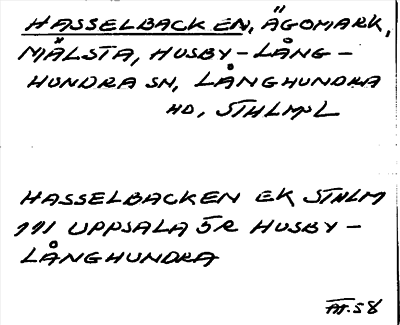 HASSELBACKEN, ÄGOMARK,
MÄLSTA, HUSBY-LÅNG-
HUNDRA SN, LÅNGHUNDRA
HD, STHLMSL
HASSELBACKEN EK STHLM
111 UPPSALA 5R HUSBY-
LÅNGHUNDRA
58